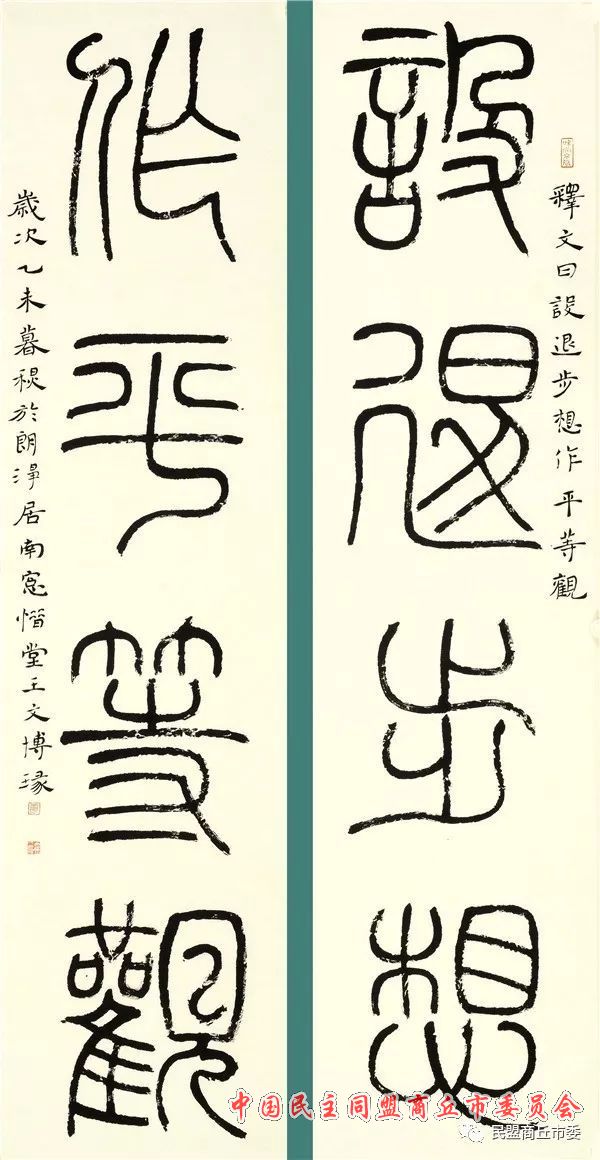 釋文曰設退步想作平等觀
設退步想
作平等觀
歲次乙未暮秋於朗淨居南窓堂王文博瑑
中国民主同盟商丘市委员会
民盟商丘市委